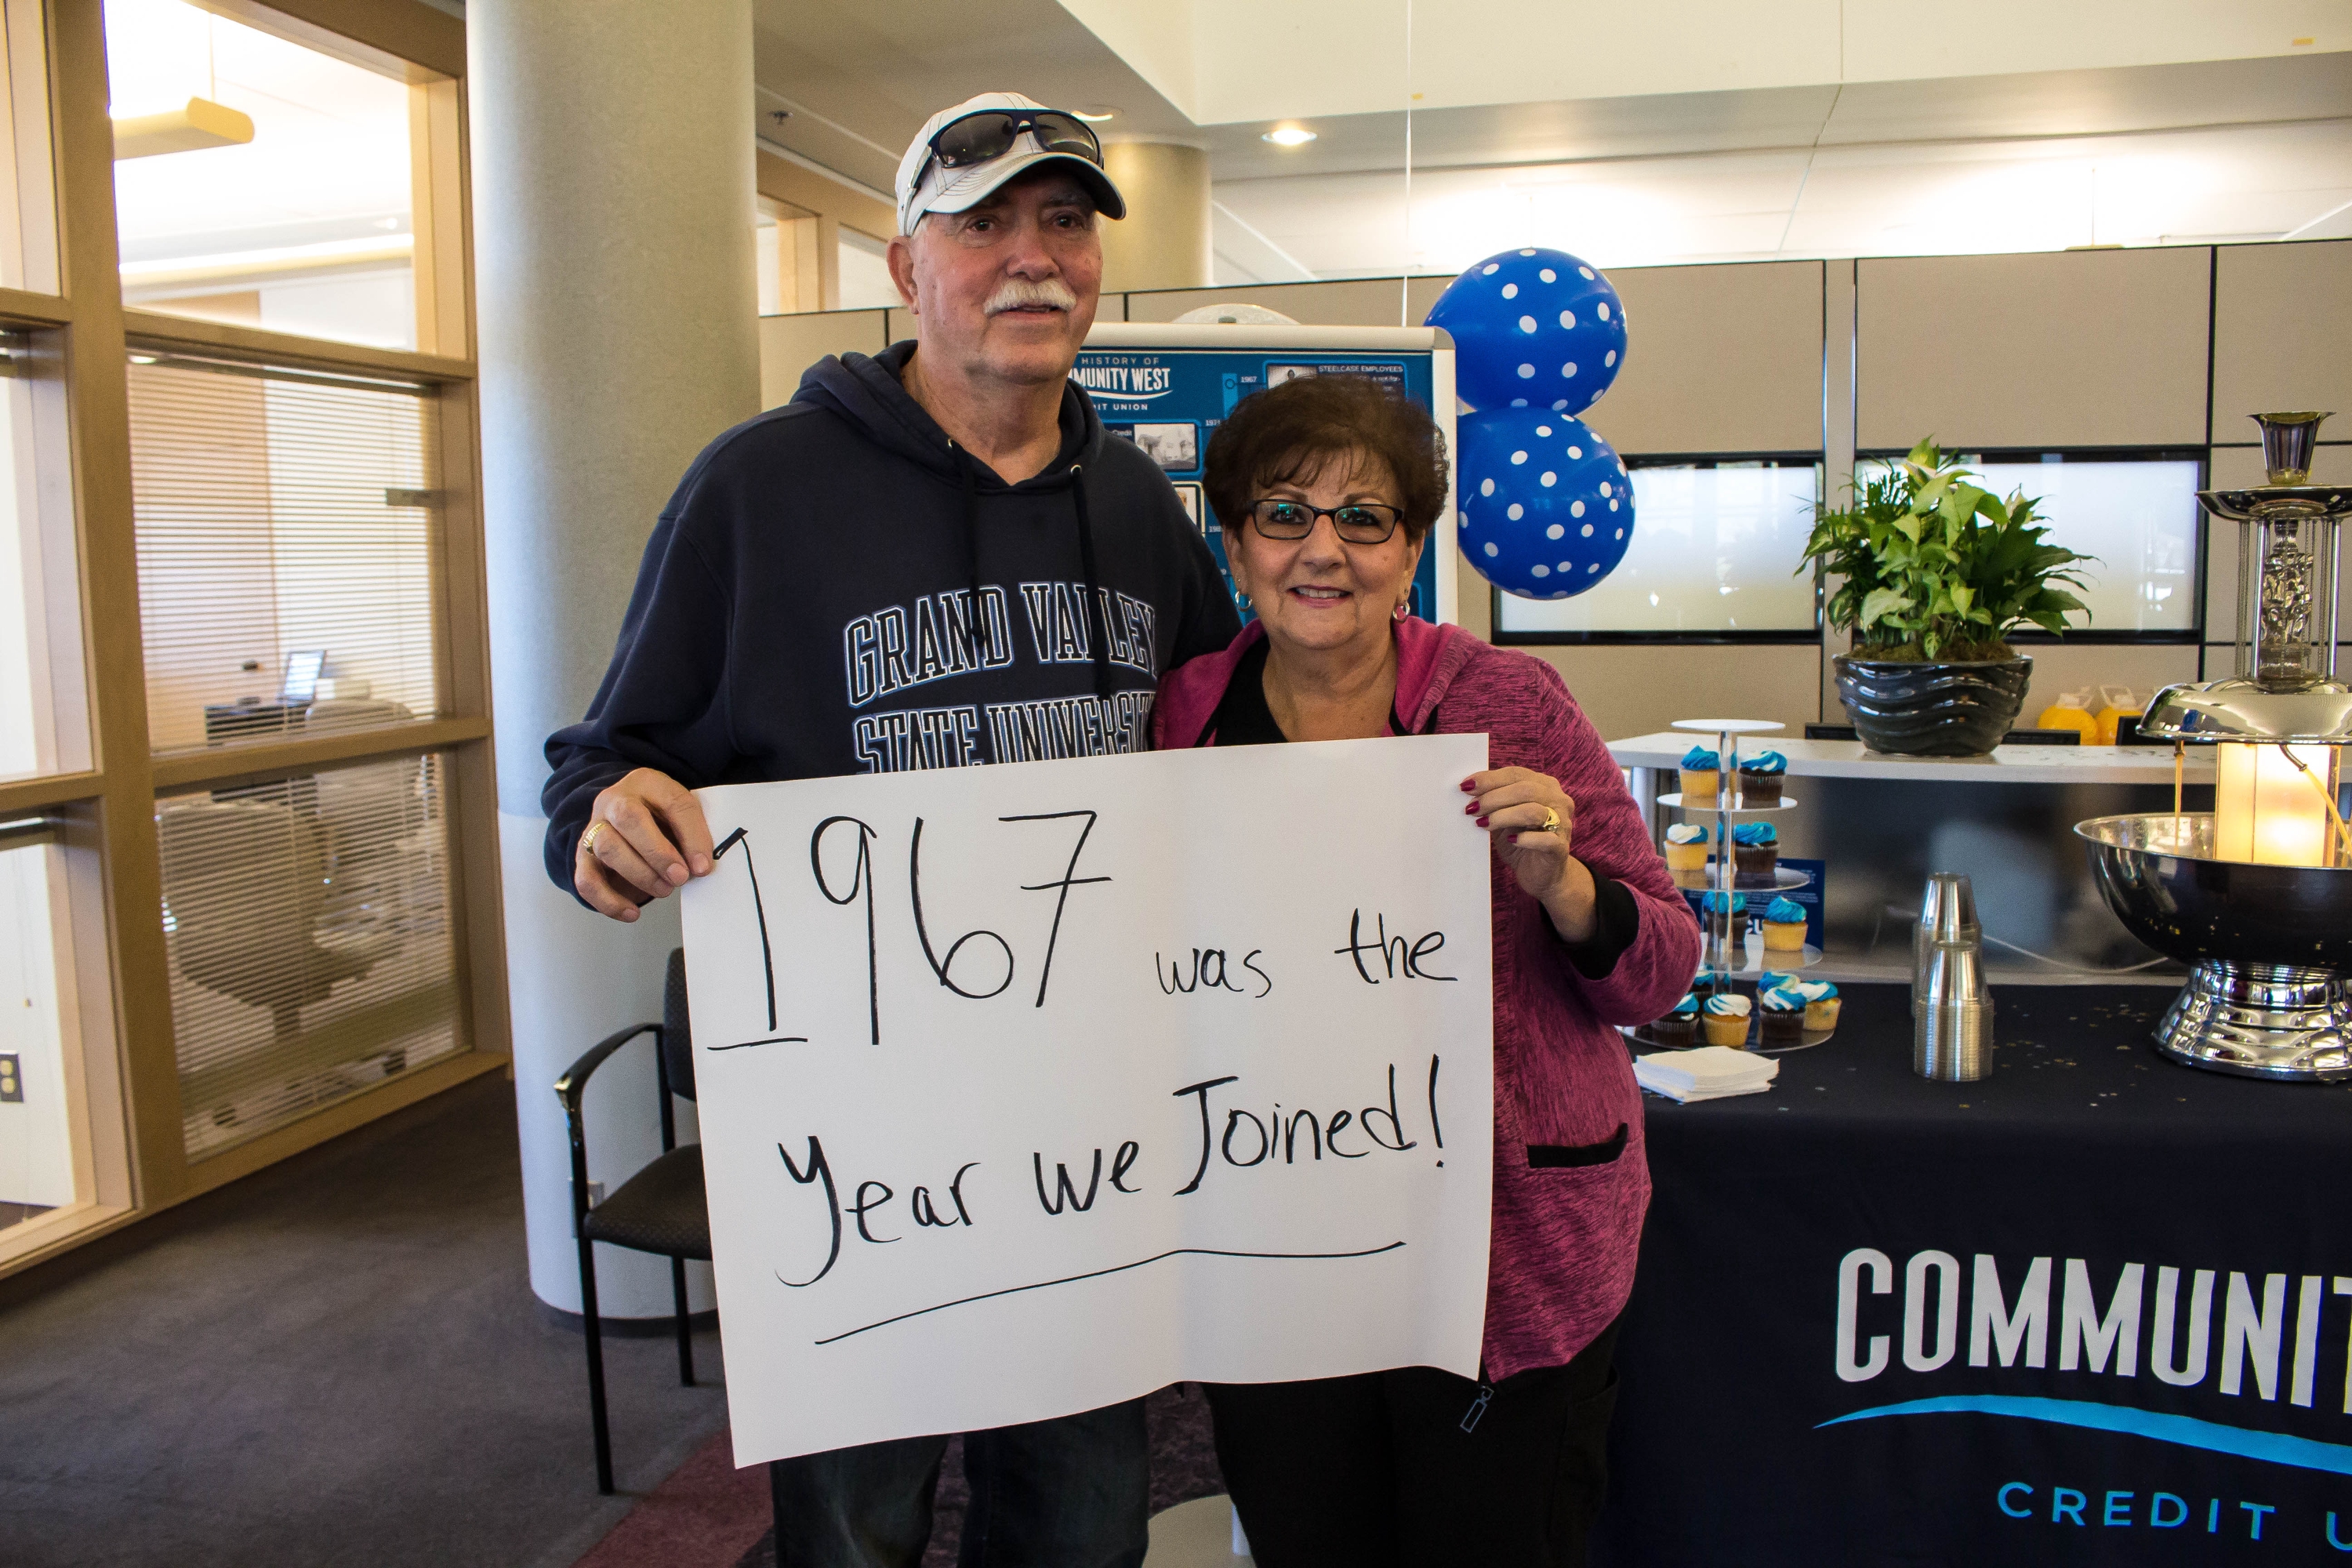 HISTORY OF
MUNITY WEST
IT UNION
1967
STEELCASE EMPLOYEES
GRAND VALLEY
STATE UNIVERSIT
1967 was the
Year we Joined!
COMMUNIT
CREDIT U